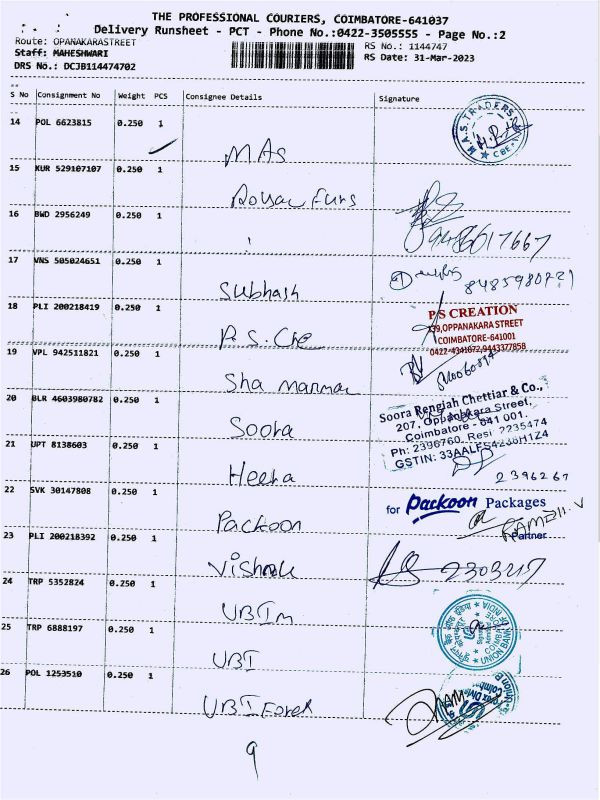 THE PROFESSIONAL COURIERS, COIMBATORE-641037
Delivery Runsheet - PCT - Phone No.:0422-3505555 - Page No.:2
Route: OPANAKARASTREET
RS No.: 1144747
Staff: MAHESHWARI
RS Date: 31-Mar-2023
DRS No.: DCJB114474702
S No Consignment No Weight PCS Consignee Details Signature
14 POL 6623815 0.250 1
MAS
M.A.S. TRADERS
15 KUR 529107107 0.250 1
Royal Furs
16 BWD 2956249 0.250 1
17 VNS 505024651 0.250 1
Subhash
18 PLI 200218419 0.250 1
P.S. Cre
P.S CREATION
139, OPPANAKARA STREET
COIMBATORE-641001
0422-4341072,9443377858
19 VPL 942511821 0.250 1
Sha
20 BLR 4603980782 0.250 1
Soora
Soora Rengiah Chettiar & Co.,
207, Oppanakara Street,
Coimbatore - 641 001.
Ph: 2396760, Resi: 2235474
21 UPT 8138603 0.250 1
Heera
2396267
22 SVK 30147808 0.250 1
Packoon
for Packoon Packages
Partner
23 PLI 200218392 0.250 1
Vishal
24 TRP 5352824 0.250 1
UBI
UNION BANK OF INDIA
25 TRP 6888197 0.250 1
UBI
26 POL 1253510 0.250 1
UBI Forex
9